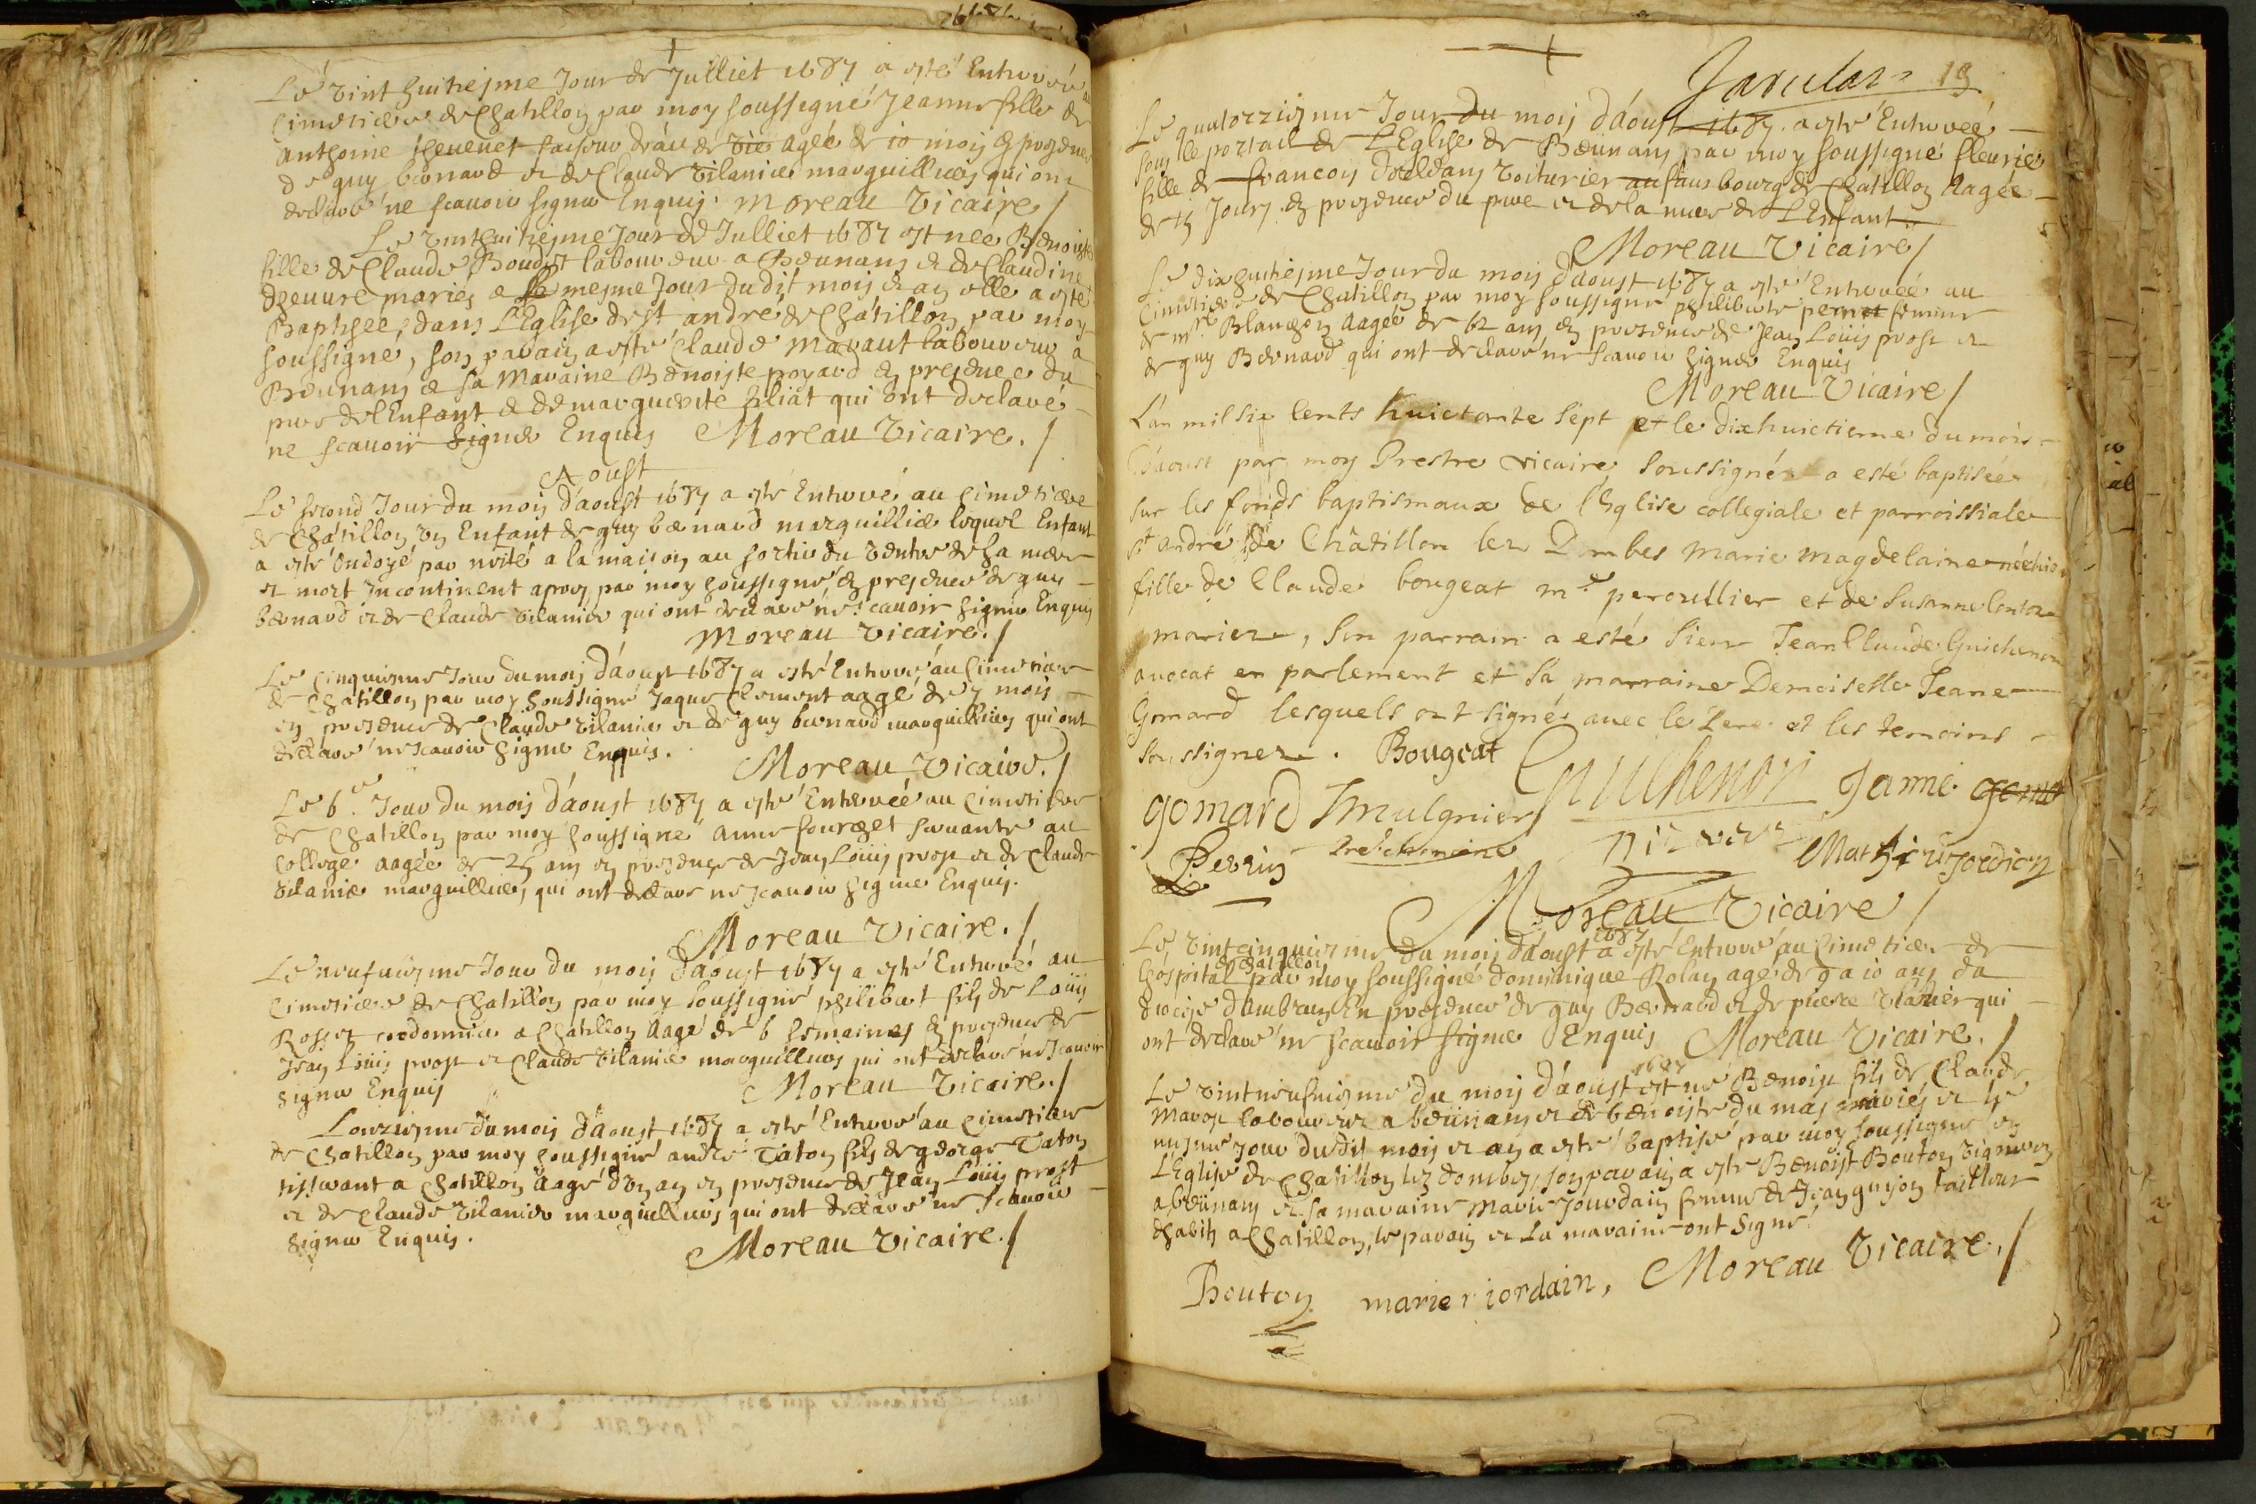 Le vint huitiesme Jour de Julliet 1687 a esté Enterrée au
Cimetiere de Chatillon par moy soussigné Jeanne fille de
Anthoine faiseur d'eau de vie agée de 10 mois en presence
de guy bernard et de Claude vilanier marguilliers qui ont
declaré ne scavoir signer Enquis. Moreau Vicaire
Le vint huitiesme Jour de Julliet 1687 est nee Benoiste
fille de Claude Boudet laboureur a Beunans et de Claudine
mariés e le mesme Jour dudit mois et an elle a esté
Baptisée, dans L'Eglise de st andré de Chatillon par moy
soussigné, son parain a esté Claude Maraut laboureur a
Beunans e sa Maraine Benoiste poyard en presence du
pere de l'Enfant e de marguerite filiat qui ont declaré
ne scavoir signer Enquis Moreau Vicaire.
Aoust
Le second Jour du mois d'aoust 1687 a esté Enterré au Cimetiere
de Chatillon un Enfant de guy bernard marguillier lequel Enfant
a esté Ondoyé par a la maison au sortir du ventre de sa mere
et mort Incontinent apres par moy soussigné en presence de guy
bernard et de Claude vilanier qui ont declaré ne scavoir signer Enquis
Moreau Vicaire.
Le Cinquiesme Jour du mois d'aoust 1687 a esté Enterré au Cimetiere
de Chatillon par moy soussigné Jaque Clement aagé de 7 mois
en presence de Claude vilanier et de guy bernard marguilliers qui ont
declaré ne scavoir signer Enquis.
Moreau Vicaire.
Le 6e Jour du mois d'aoust 1687 a esté Enterréé au Cimetiere
de Chatillon par moy soussigné anne fourget servante au
College aagée de 25 ans en presence de Jean Louis prost et de Claude
vilanier marguilliers, qui ont declaré ne scavoir signer Enquis.
Moreau Vicaire.
Le neufuiesme Jour du mois d'aoust 1687 a esté Enterré au
Cimetiere de Chatillon par moy soussigné philibert fils de Louis
Rosset cordonnier a Chatillon aagé de 6 semaines en presence de
Jean Louis prost et Claude vilanier marguilliers qui ont declaré ne scavoir
signer Enquis
Moreau Vicaire.
L'onziesme du mois d'aoust 1687 a esté Enterré au Cimetiere
de Chatillon par moy soussigné andré Taton fils de george Taton
tisserant a Chatillon aagé d'un an en presence de Jean Louis prost
et de Claude vilanier marguilliers qui ont declaré ne scavoir
signer Enquis.
Moreau Vicaire.
19
Le quatorziesme Jour du mois d'aoust 1687 a esté Enterréé
sous le portail de L'Eglise de Beunans par moy soussigné fleurie
fille de francois voiturier au fausbourg de Chatillon Aagée
de 15 Jours en presence du pere et de la mere de L'Enfant
Moreau Vicaire
Le dixhuitiesme Jour du mois d'aoust 1687 a esté Enterréé au
Cimetiere de Chatillon par moy soussigné philiberte pernet femme
de mre Blanchon Aagée de 62 ans en presence de Jean Louis prost et
de guy Bernard qui ont declaré ne scavoir signer Enquis
Moreau Vicaire
L'an mil six cents huictante sept et le dixhuictieme du mois
D'aoust par moy Prestre vicaire soussigné a esté baptisée
sur les fonds baptismaux de l'Eglise collegiale et parroissiale
St andré de Châtillon lez Dombes Marie Magdelaine
fille de Claude bougeat me et de Susanne
mariez, son parrain a esté Sieur Jean Claude Guichenon
avocat en parlement et sa marraine Demoiselle Jeane
Gomard lesquels ont signé avec le Pere et les temoins
soussignez. Bougeat Guichenon Janne
gomard
Perrin Mathieu
Moreau Vicaire
Le vintcinquiesme du mois d'aoust 1687 a esté Enterré au Cimetiere de
L'hospital de Chatillon par moy soussigné dominique Rolan agé de 9 a 10 ans du
diocese d'ambrun En presence de guy Bernard et de pierre qui
ont declaré ne scavoir signer Enquis Moreau Vicaire.
Le vintneufuiesme du mois d'aoust 1687 est né Benoist fils de Claude
Marost laboureur a beunans et de benoiste du mas mariés et le
mesme Jour dudit mois et an a esté baptisé par moy soussigné en
L'Eglise de Chatillon lez dombes, son parain a esté Benoist Bouton vigneron
a beunans et sa maraine Marie Jourdain femme de Jean guyon tailleur
d'habits a Chatillon, le parain et La maraine ont Signé.
Bouton marie iordain, Moreau Vicaire.